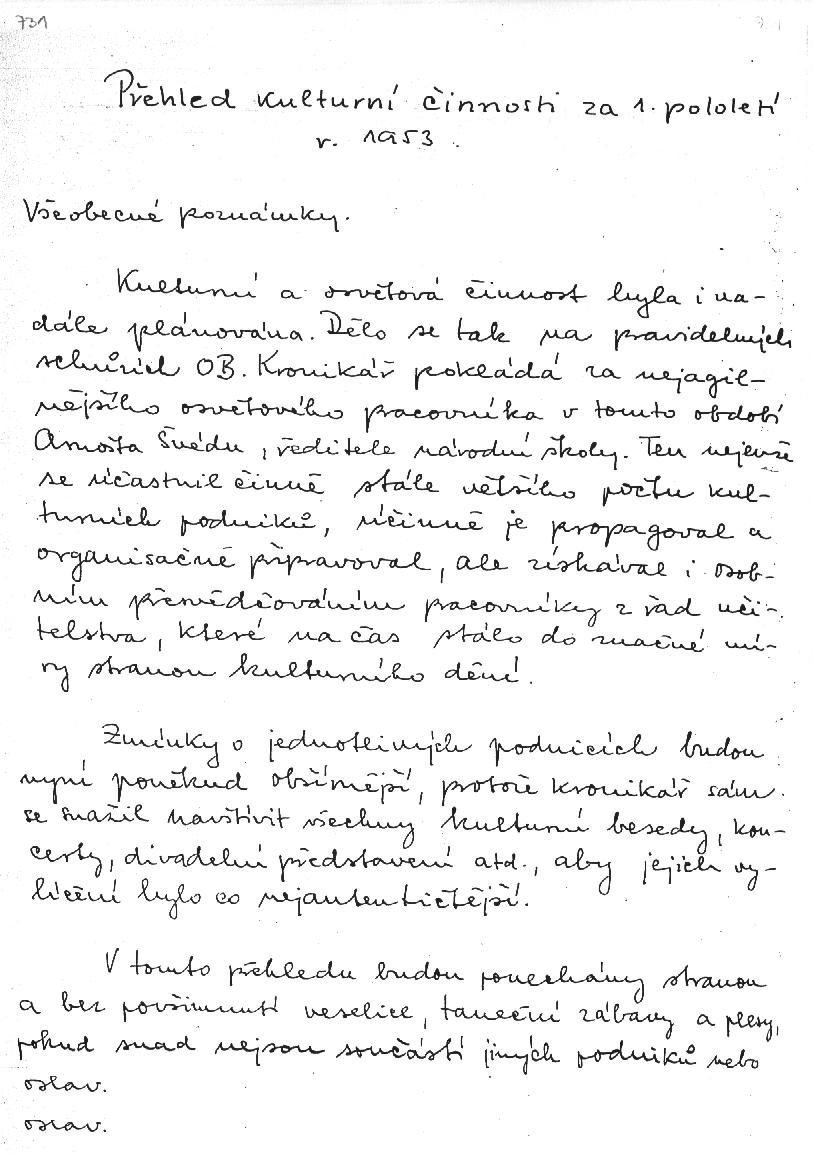 731
Přehled kulturní činnosti za 1. pololetí
r. 1953.
Všeobecné poznámky.
Kulturní a osvětová činnost byla i na-
dále plánována. Dělo se tak na pravidelných
schůzích OB. Kronikář pokládá za nejagil-
nějšího osvětového pracovníka v tomto období
Arnošta Švédu, ředitele národní školy. Ten nejenže
se účastnil činně stále většího počtu kul-
turních podniků, účinně je propagoval a
organisačně připravoval, ale získával i osob-
ním přesvědčováním pracovníky z řad uči-
telstva, které na čas stálo do značné mí-
ry stranou kulturního dění.
Zmínky o jednotlivých podnicích budou
nyní poněkud obšírnější, protože kronikář sám
se snažil navštívit všechny kulturní besedy, kon-
certy, divadelní představení atd., aby jejich vy-
líčení bylo co nejautentičtější.
V tomto přehledu budou ponechány stranou
a bez povšimnutí veselice, taneční zábavy a plesy,
pokud snad nejsou součástí jiných podniků nebo
oslav.
oslav.